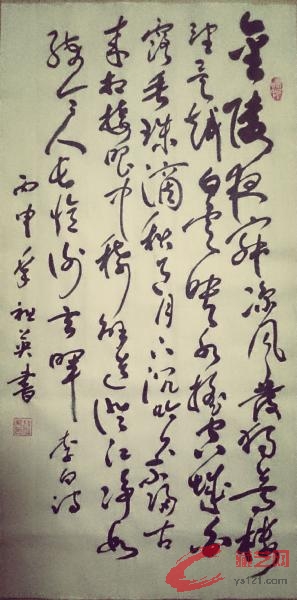 金陵夜寂凉风发独上高楼
望吴越白云映水摇空城白
露垂珠滴秋月月下沉吟久不归古
来相接眼中稀解道澄江净如
练令人长忆谢玄晖 李白诗
丙申年祖英书
ys121.com